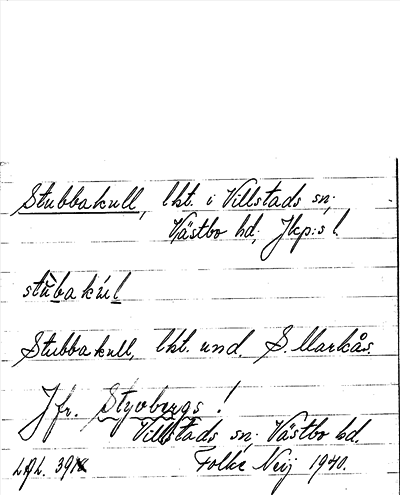 Stubbakull, lht. i Villstads sn;
Västbo hd; Jkp:s l.
stubakul
Stubbakull, lht. und. S. Markås.
Jfr. Styvbergs!
Villstads sn; Västbo hd.
Folke Neij 1940.